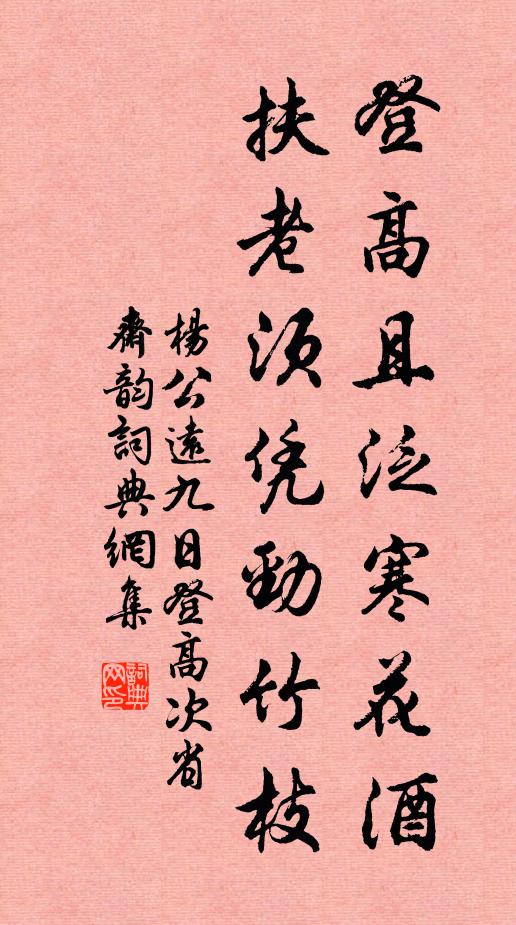 登高且泛寒花酒
扶老須凭勁竹枝
楊公遠九日登高次省
齋韵詞典網集
詞典网印